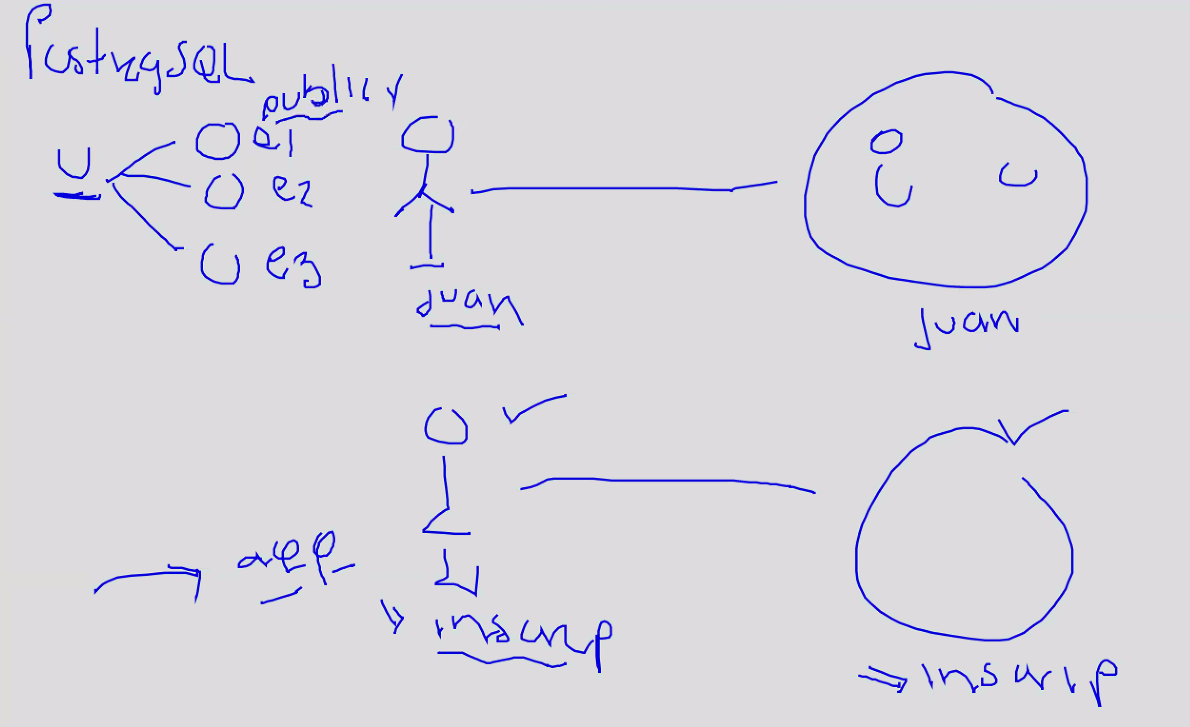 PostgreSQL
public
U
e1
e2
e3
juan
juan
app
inscrip
inscrip